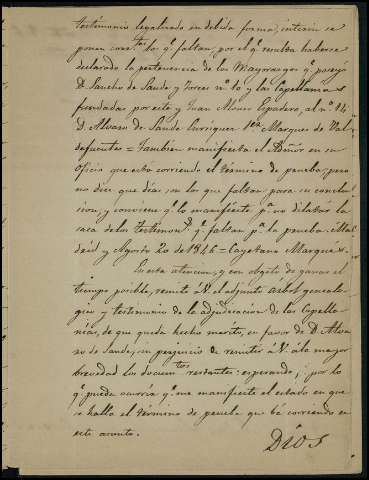 testimonio legalizado en debida forma, interin se
ponen corr.tes los q.e faltan, por el q.e resulta haberse
declarado la pertenencia de los Mayorazgos q.e poseyó
D. Sancho de Sande y Torres n.o 10 y las Capellanias
fundadas por este y Juan Alonso Espadero, al n.o 14
D. Alvaro de Sande Enriquez 1.er Marques de Val-
defuentes = Tambien manifiesta el Admōr en su
oficio que esta corriendo el término de prueba, pero
no dice que dias son los que faltan para su conclu-
sion, y conviene q.e lo manifieste p.a no dilatar la
saca de los testimon.s q.e faltan p.a la prueba. Ma-
drid y Agosto 20 de 1846 = Cayetano Marquéz.
En esta atencion, y con objeto de ganar el
tiempo posible, remito á V. el adjunto árbol genealo-
gico y testimonio de la adjudicacion de las Capella-
nias, de que queda hecho merito, en favor de D. Alva-
ro de Sande, sin perjuicio de remitir á V. á la mayor
brevedad los docum.tos restantes: esperando, por lo
q.e pueda ocurrir q.e me manifieste el estado en que
se halla el término de prueba que va corriendo en
este asunto.
Dios